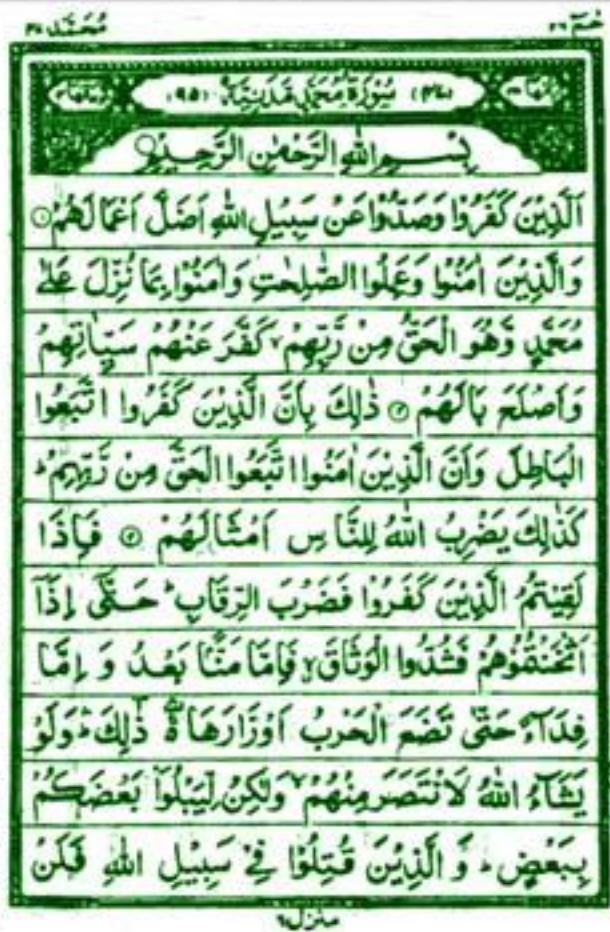 حٰمٓ ۲۶ مُحَمَّد ۴۷
اٰیَاتُهَا ۳۸ (۴۷) سُوْرَةُ مُحَمَّدٍ مَّدَنِیَّةٌ (۹۵) رُكُوْعَاتُهَا ۴
بِسْمِ اللّٰهِ الرَّحْمٰنِ الرَّحِیْمِ
اَلَّذِیْنَ كَفَرُوْا وَصَدُّوْا عَنْ سَبِیْلِ اللّٰهِ اَضَلَّ اَعْمَالَهُمْ ۝۱
وَالَّذِیْنَ اٰمَنُوْا وَعَمِلُوا الصّٰلِحٰتِ وَاٰمَنُوْا بِمَا نُزِّلَ عَلٰی
مُحَمَّدٍ وَّهُوَ الْحَقُّ مِنْ رَّبِّهِمْ ۙ كَفَّرَ عَنْهُمْ سَیِّاٰتِهِمْ
وَاَصْلَحَ بَالَهُمْ ۝۲ ذٰلِكَ بِاَنَّ الَّذِیْنَ كَفَرُوا اتَّبَعُوا
الْبَاطِلَ وَاَنَّ الَّذِیْنَ اٰمَنُوا اتَّبَعُوا الْحَقَّ مِنْ رَّبِّهِمْ ؕ
كَذٰلِكَ یَضْرِبُ اللّٰهُ لِلنَّاسِ اَمْثَالَهُمْ ۝۳ فَاِذَا
لَقِیْتُمُ الَّذِیْنَ كَفَرُوْا فَضَرْبَ الرِّقَابِ ؕ حَتّٰۤی اِذَاۤ
اَثْخَنْتُمُوْهُمْ فَشُدُّوا الْوَثَاقَ ۙ فَاِمَّا مَنًّۢا بَعْدُ وَ اِمَّا
فِدَآءً حَتّٰی تَضَعَ الْحَرْبُ اَوْزَارَهَا ذٰلِكَ ۛؕ وَلَوْ
یَشَآءُ اللّٰهُ لَانْتَصَرَ مِنْهُمْ ۙ وَلٰكِنْ لِّیَبْلُوَا۟ بَعْضَكُمْ
بِبَعْضٍ ؕ وَ الَّذِیْنَ قُتِلُوْا فِیْ سَبِیْلِ اللّٰهِ فَلَنْ
منزل ۶